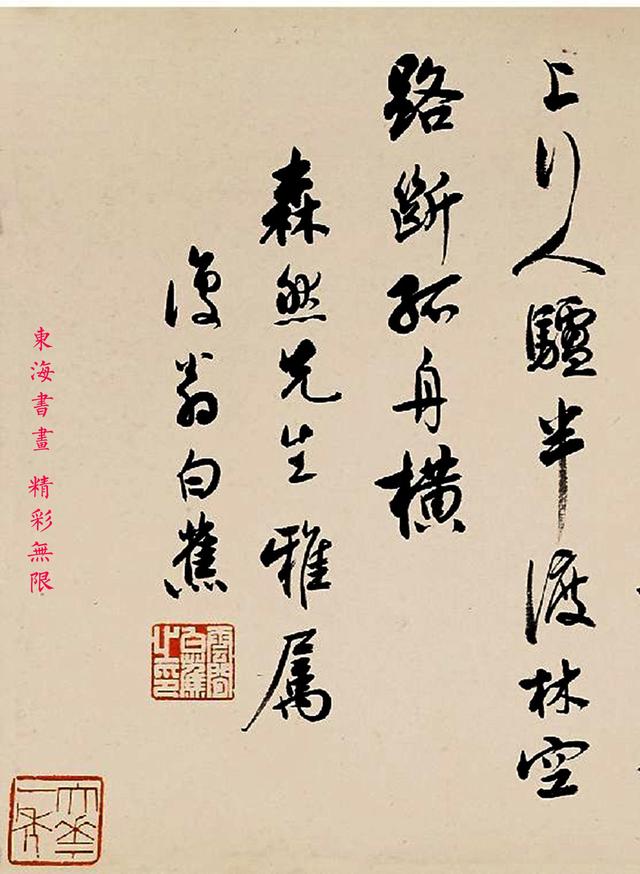 上行人驢半渡林空
路斷孤舟橫
森然先生雅属
復翁白蕉
雲間白蕉
東海書畫 精彩無限